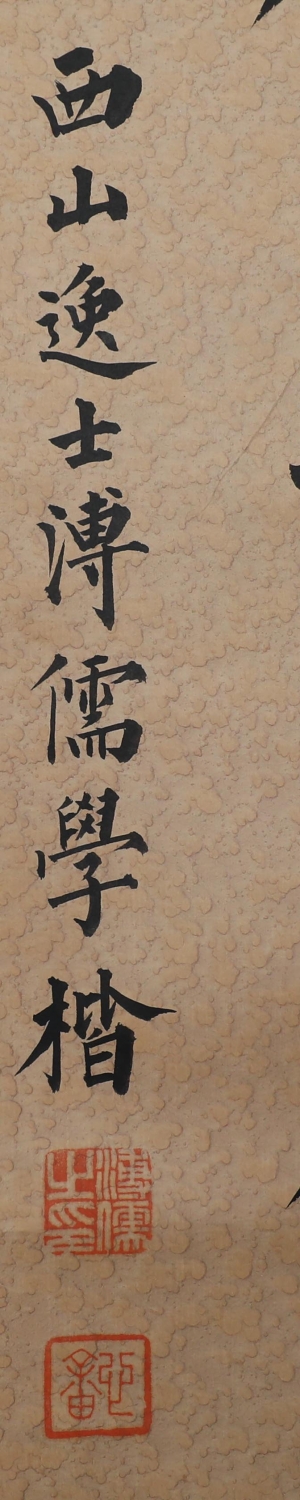 西山逸士溥儒學楷
溥儒之印